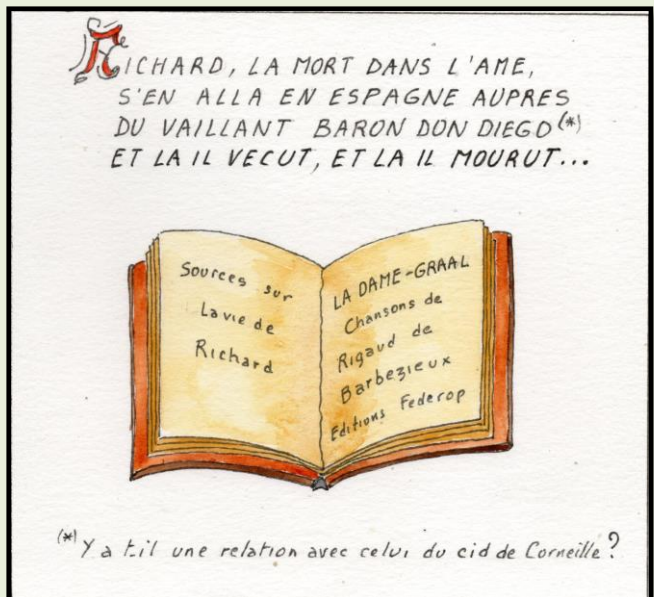 RICHARD, LA MORT DANS L'AME,
S'EN ALLA EN ESPAGNE AUPRES
DU VAILLANT BARON DON DIEGO(*)
ET LA IL VECUT, ET LA IL MOURUT...
Sources sur
La vie de
Richard
LA DAME-GRAAL
Chansons de
Rigaud de
Barbezieux
Editions Federop
(*) Y a t-il une relation avec celui du cid de Corneille ?